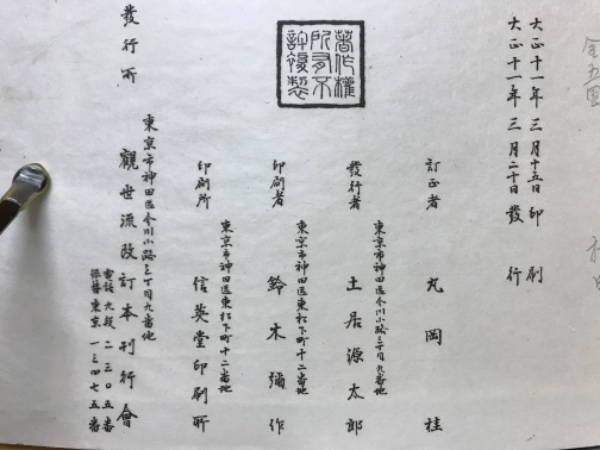 大正十一年三月十五日印刷
大正十一年三月二十日發行
著作權
所有不
許複製
訂正者 丸岡桂
東京市神田區今川小路三丁目九番地
發行者 土居源太郎
東京市神田區東松下町十二番地
印刷者 鈴木彌作
東京市神田區東松下町十二番地
印刷所 信英堂印刷所
發行所
東京市神田區今川小路三丁目九番地
觀世流改訂本刊行會
電話九段二三〇五番
振替東京一三四七五番